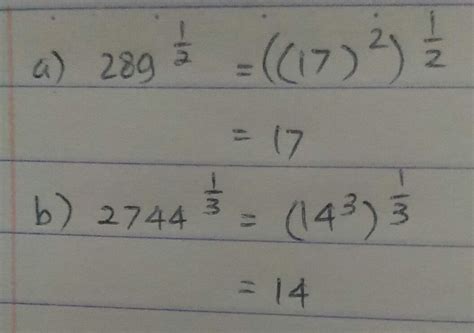 a) 289^(1/2) = ((17)^2)^(1/2)
= 17
b) 2744^(1/3) = (14^3)^(1/3)
= 14